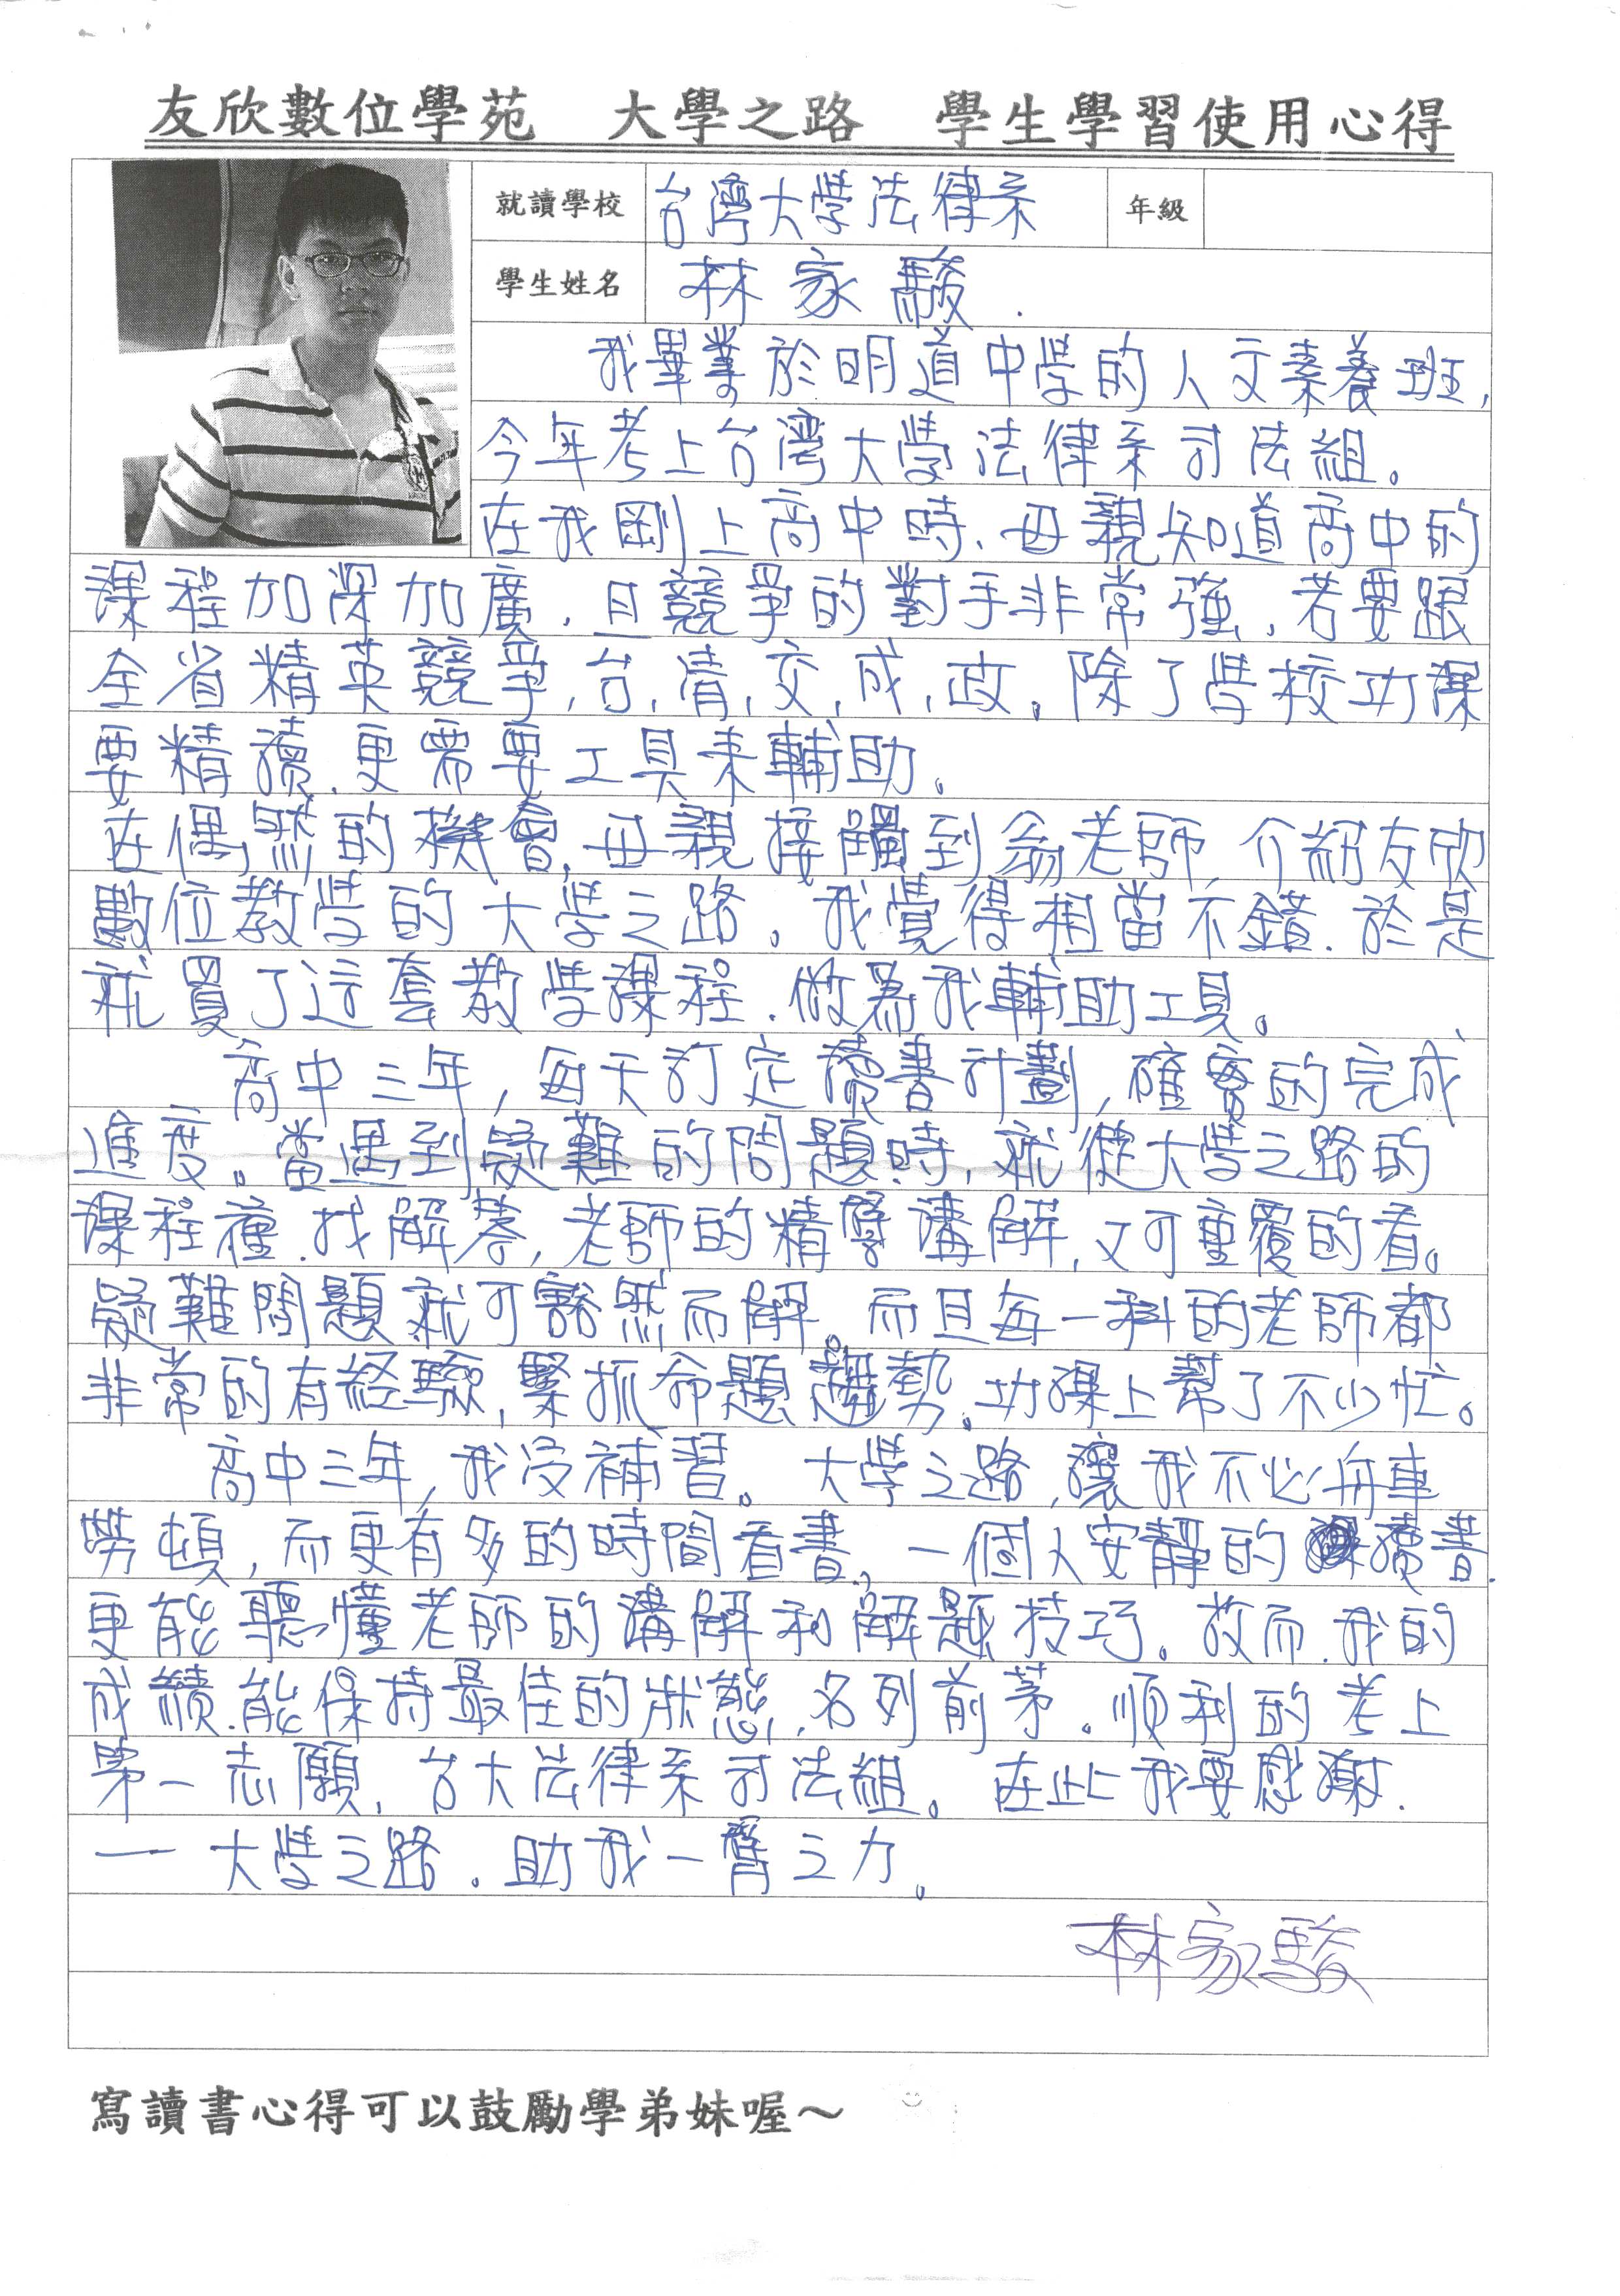 友欣數位學苑 大學之路 學生學習使用心得
就讀學校 台灣大學法律系 年級
學生姓名 林家駿.
我畢業於明道中學的人文素養班,
今年考上台灣大學法律系司法組。
在我剛上高中時、母親知道高中的
課程加深加廣,且競爭的對手非常強,若要跟
全省精英競爭,台,清,交,成,政。除了學校功課
要精讀.更需要工具來輔助。
在偶然的機會,母親接觸到翁老師,介紹友欣
數位教學的大學之路。我覺得相當不錯.於是
就買了這套教學課程.做為我輔助工具。
高中三年,每天訂定讀書計劃,確實的完成
進度。當遇到疑難的問題時,就從大學之路的
課程種.找解答,老師的精闢講解,又可重覆的看。
疑難問題就可豁然而解。而且每一科的老師都
非常的有経驗,緊抓命題趨勢。功課上幫了不少忙。
高中三年,我沒補習。大學之路,讓我不必舟車
勞頓,而更有多的時間看書,一個人安靜的讀書.
更能聽懂老師的講解和解題技巧。故而.我的
成績.能保持最佳的狀態,名列前茅。順利的考上
第一志願,台大法律系司法組。在此我要感謝.
一大學之路.助我一臂之力。
林家駿
寫讀書心得可以鼓勵學弟妹喔～